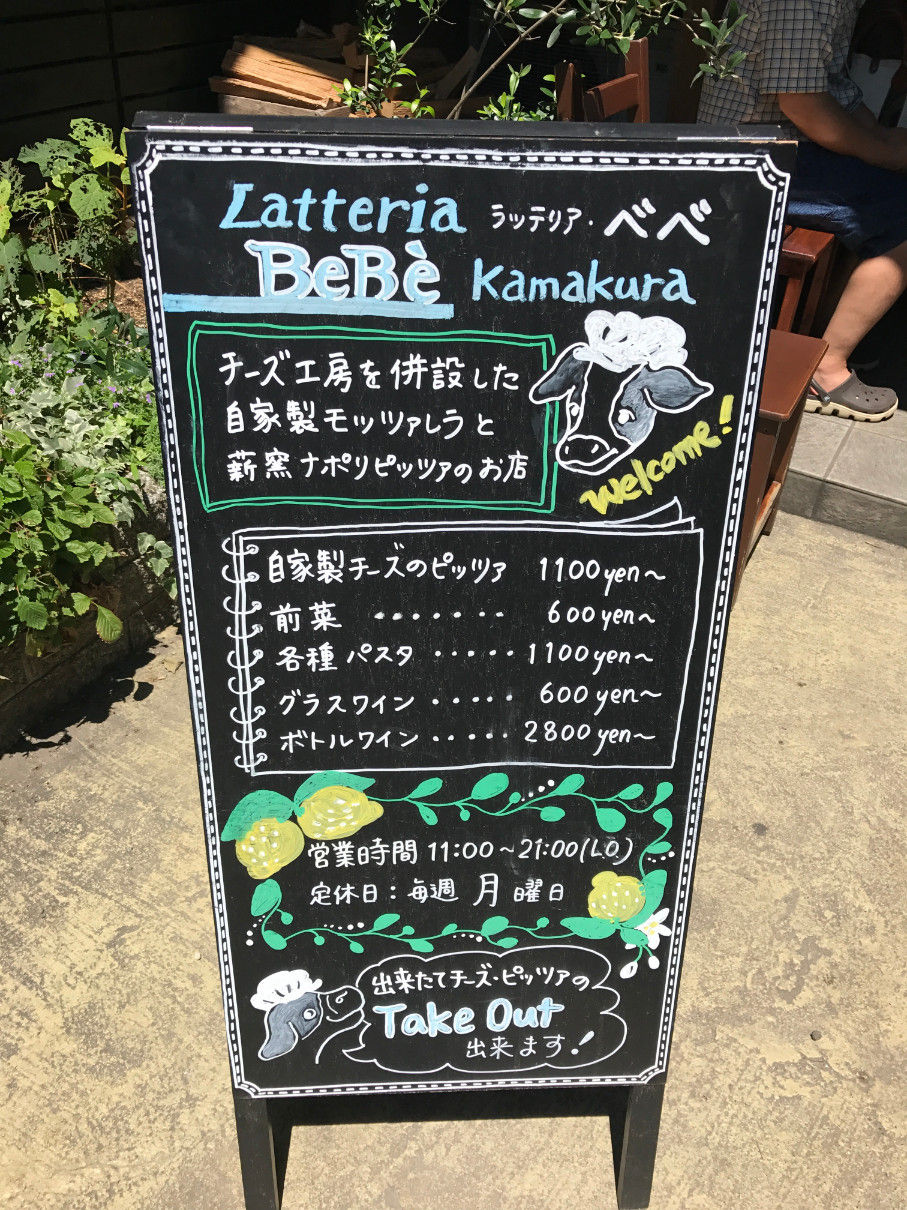 Latteria ラッテリア・べべ
BeBè Kamakura
チーズ工房を併設した
自家製モッツァレラと
薪窯ナポリピッツァのお店
Welcome!
自家製チーズのピッツァ 1100yen~
前菜 ・・・・・・・ 600yen~
各種パスタ ・・・・・ 1100yen~
グラスワイン ・・・・・ 600yen~
ボトルワイン ・・・・・ 2800yen~
営業時間 11:00~21:00(L.O)
定休日：毎週 月 曜日
出来たてチーズ・ピッツァの
Take Out
出来ます!